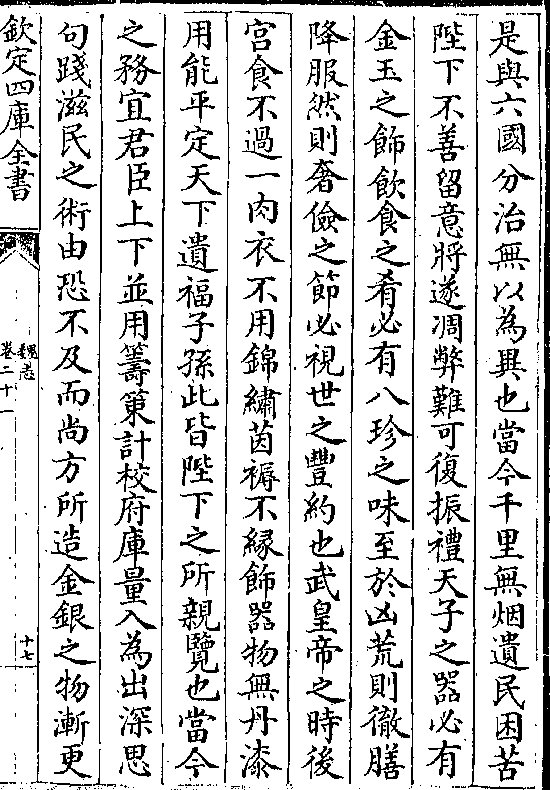 是與六國分治無以為異也當今千里無烟遺民困苦
陛下不善留意將遂凋弊難可復振禮天子之器必有
金玉之飾飲食之肴必有八珍之味至於凶荒則徹膳
降服然則奢儉之節必視世之豐約也武皇帝之時後
宮食不過一肉衣不用錦繡茵褥不緣飾器物無丹漆
用能平定天下遺福子孫此皆陛下之所親覽也當今
之務宜君臣上下並用籌策計校府庫量入為出深思
句踐滋民之術由恐不及而尚方所造金銀之物漸更
欽定四庫全書
魏志
卷二十一
十七